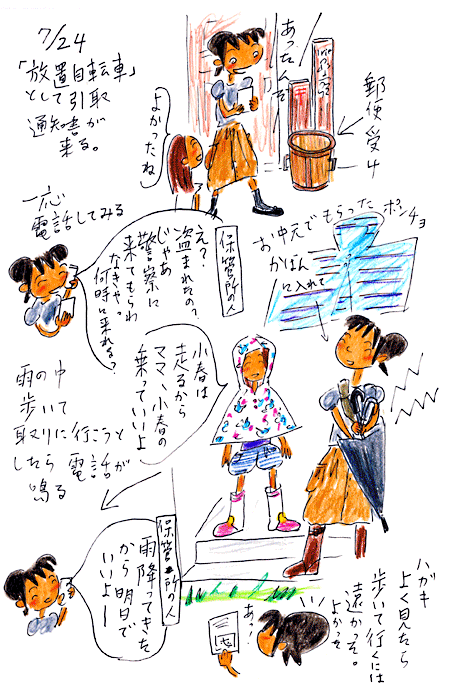 7/24
「放置自転車」
として引取
通知書が
来る。
あったんだ
郵便受け
よかったね
一応
電話してみる
保管所の人
え?
盗まれたの?
じゃあ
警察に
来てもらわ
なきゃっ
何時に来れる?
お中元でもらったポンチョ
かばん
に入れて
小春は
走るから
ママ、小春の
乗っていいよ
雨の中
歩いて
取りに行こうと
したら電話が
鳴る
保管所の人
雨降ってきた
から明日で
いいよー
ハガキ
よく見たら
歩いて行くには
遠かった。
よかった
あっ!